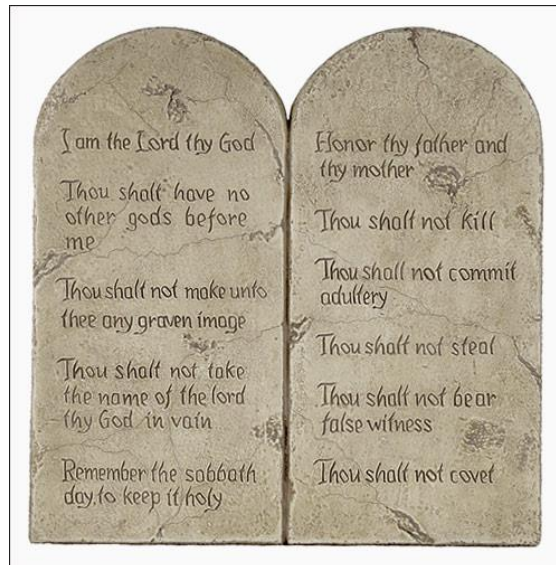 I am the Lord thy God
Thou shalt have no
other gods before
me
Thou shalt not make unto
thee any graven image
Thou shalt not take
the name of the lord
thy God in vain
Remember the sabbath
day, to keep it holy
Honor thy father and
thy mother
Thou shalt not kill
Thou shalt not commit
adultery
Thou shalt not steal
Thou shalt not bear
false witness
Thou shalt not covet